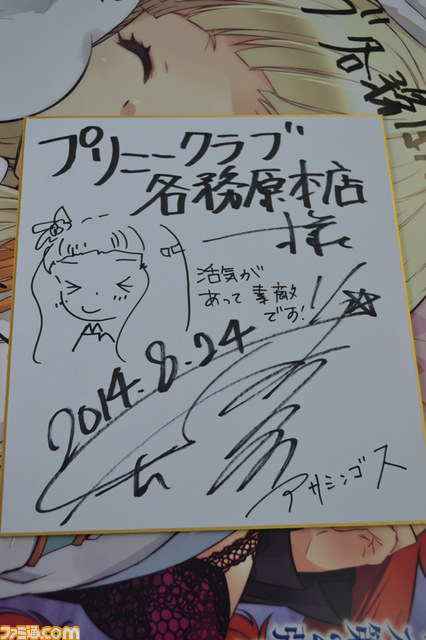 プリニークラブ
各務原本店
様
活気が
あって 素敵
です!
2014.8.24
アサシンゴス
ブ 各務原
ファミ通.com